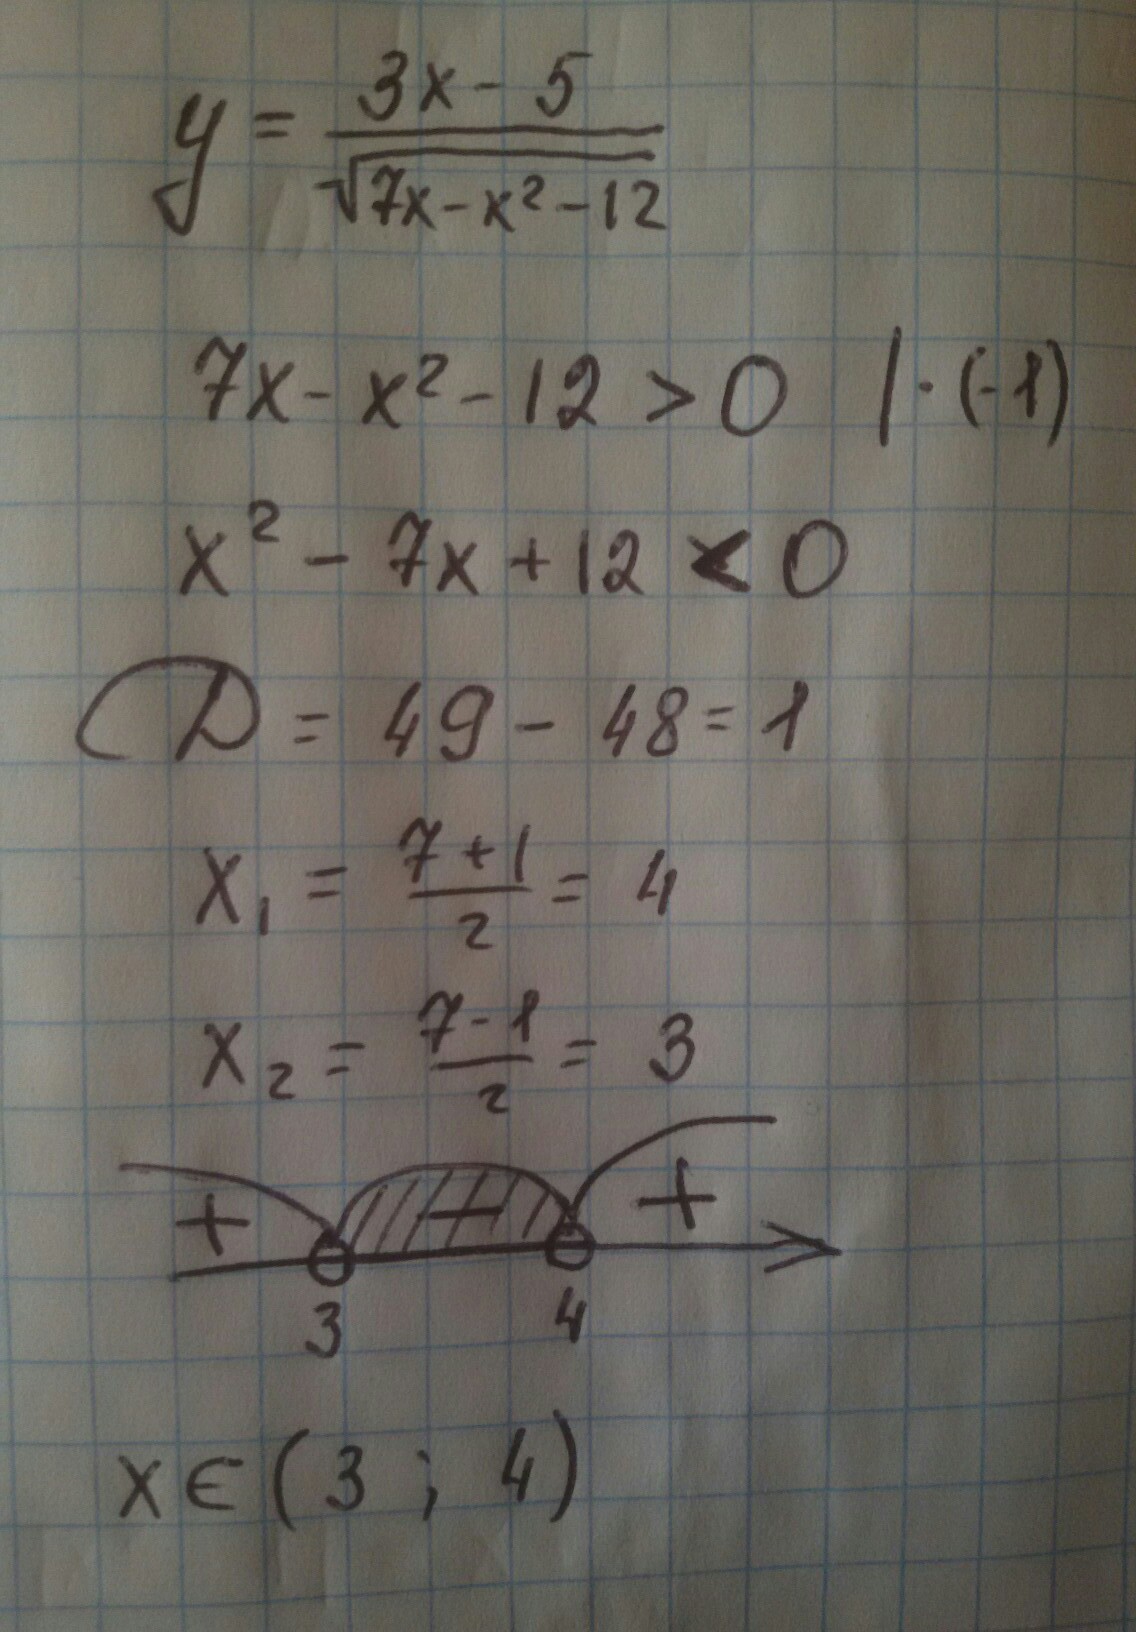 y = \frac{3x - 5}{\sqrt{7x - x² - 12}}
7x - x² - 12 > 0 | · (-1)
x² - 7x + 12 < 0
D = 49 - 48 = 1
x₁ = \frac{7 + 1}{2} = 4
x₂ = \frac{7 - 1}{2} = 3
+ - +
3 4
x ∈ (3 ; 4)